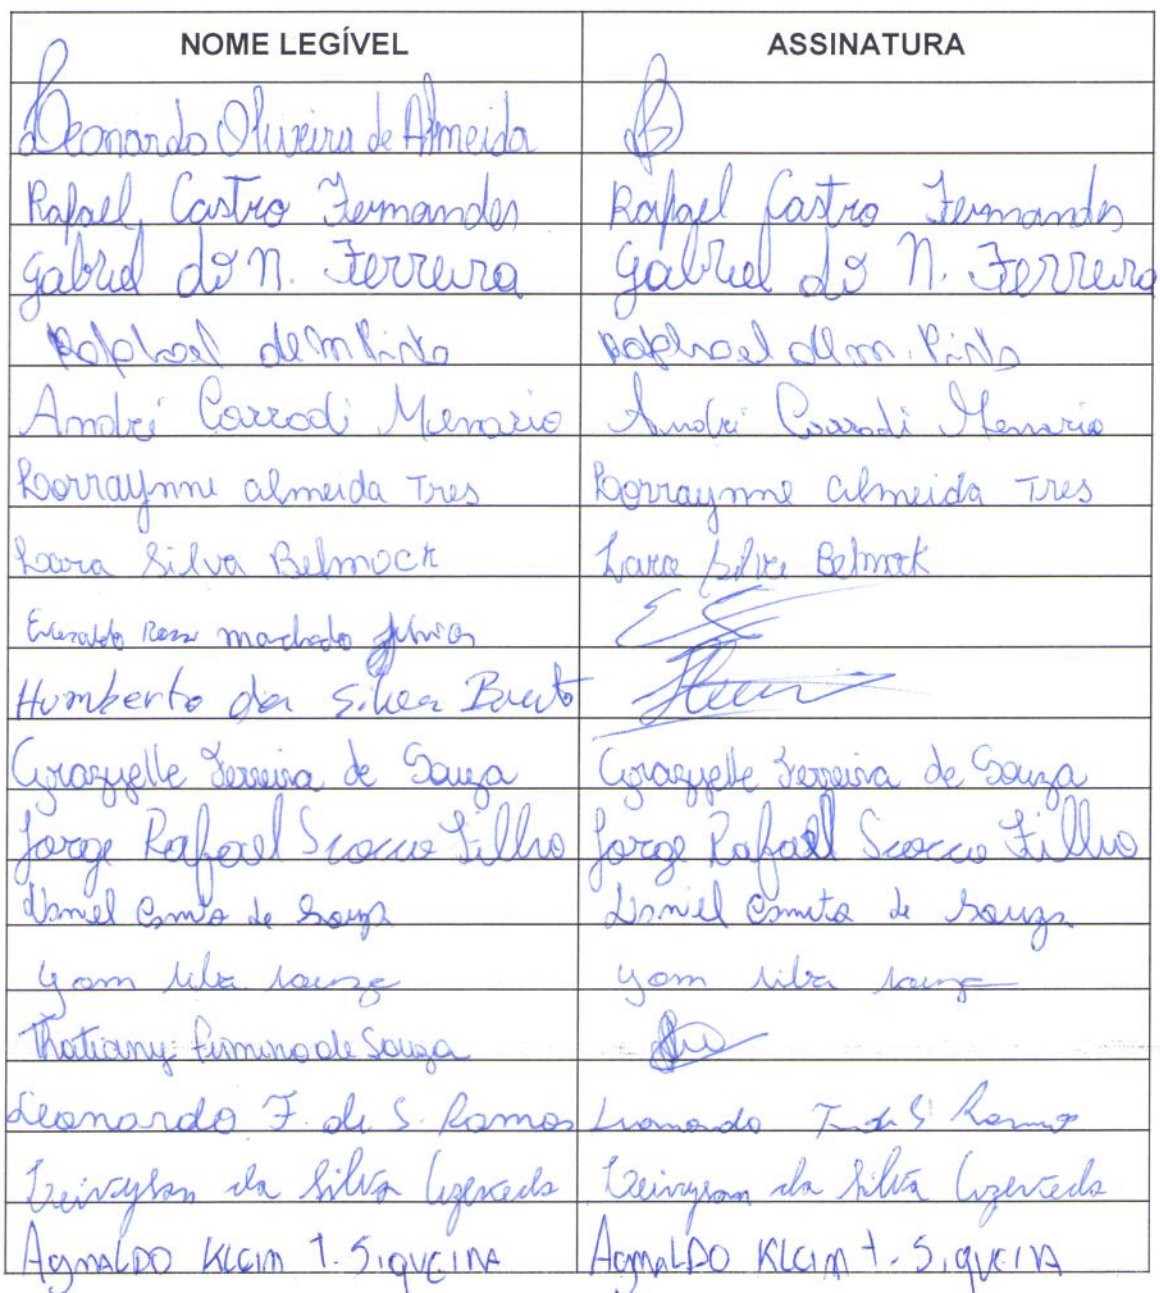 NOME LEGÍVEL ASSINATURA
Leonardo Oliveira de Almeida
Rafael Castro Fernandes Rafael Castro Fernandes
Gabriel do N. Ferreira Gabriel do N. Ferreira
Raphael de M Pinto Raphael de M. Pinto
André Corradi Menario André Corradi Menario
Lorraynne almeida Tres Lorraynne almeida Tres
Lara Silva Belmock Lara Silva Belmock
machado Júnior
Humberto da Silva
Grazyelle Ferreira de Souza Grazyelle Ferreira de Souza
Jorge Rafael Scocco Filho Jorge Rafael Scocco Filho
Daniel de Souza Daniel de Souza
Yam silva souza Yam silva souza
Thatiany Firmino de Souza
Leonardo F. de S. Ramos Leonardo F. de S Ramos
da Silva Azevedo da Silva Azevedo
AgnaLDO KLein T. SiQueiRA AgnaLDO KLein T. SiQueiRA